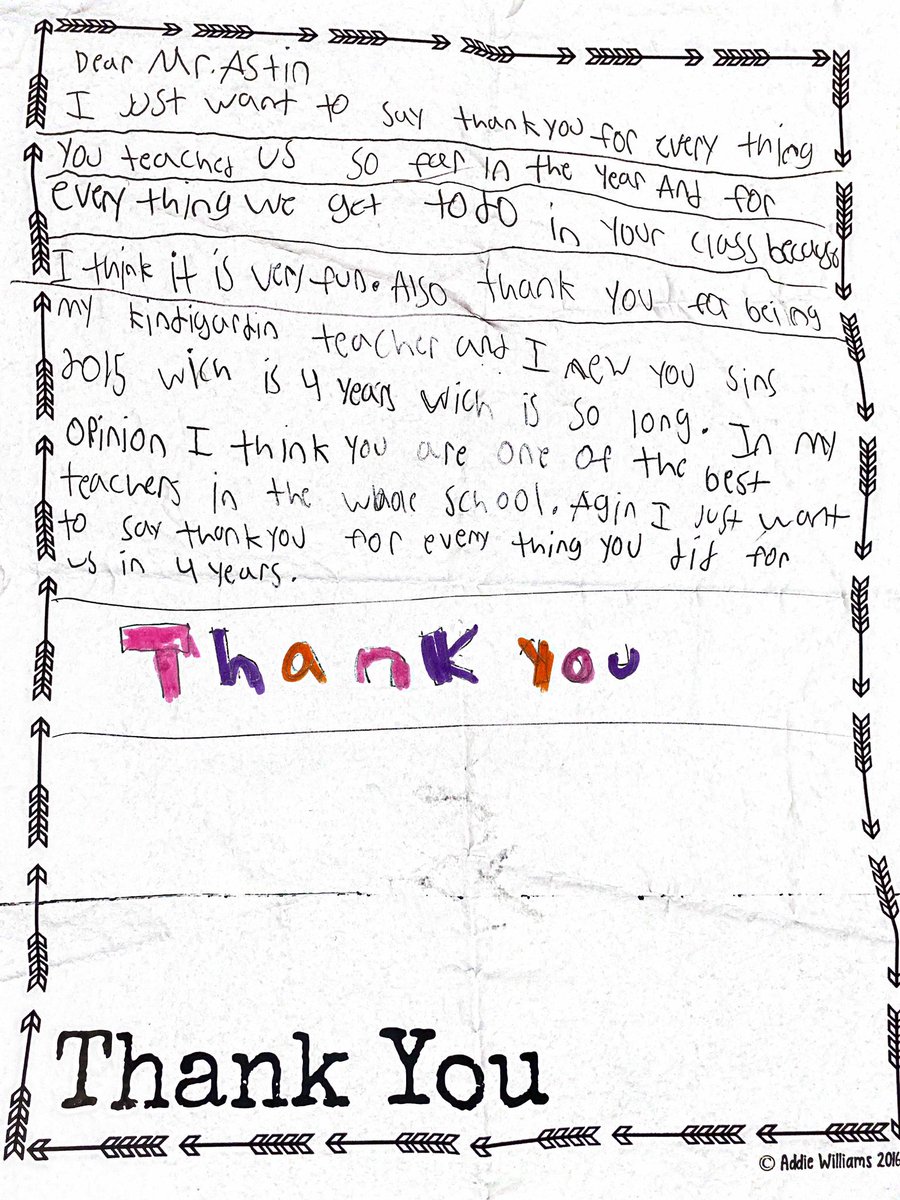 Dear Mr. Astin
I Just want to say thankyou for every thing
You teached us so fear in the year And for
every thing we get to do in Your class because
I think it is very fun. Also thank you for being
my kindigardin teacher and I new you sins
2015 wich is 4 years wich is so long. In my
opinion I think you are one of the best
teachers in the whole school. Agin I just want
to say thankyou for every thing you did for
us in 4 years.
Thank You
Thank You
© Addie Williams 2016